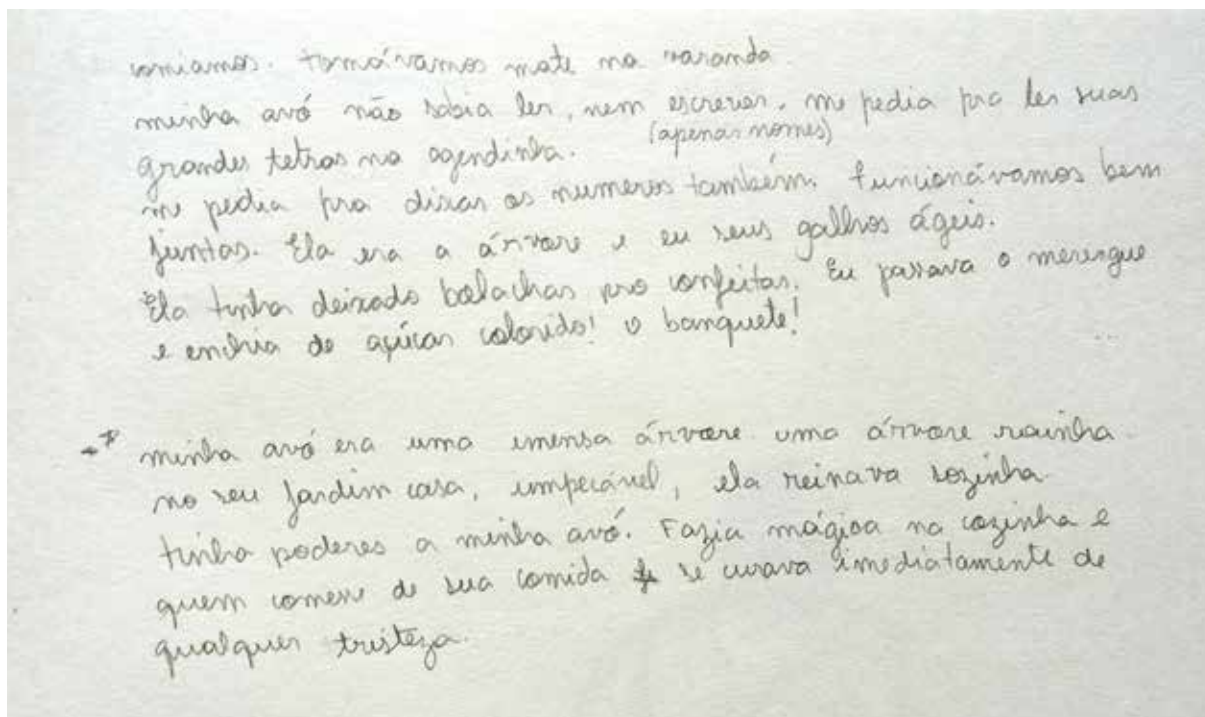 comíamos. tomávamos mate na varanda.
minha avó não sabia ler, nem escrever. me pedia pra ler suas
grandes letras na agendinha. (apenas nomes)
me pedia pra discar os numeros também. funcionávamos bem
juntas. Ela era a árvore e eu seus galhos ágeis.
Ela tinha deixado bolachas pro confeitar. Eu passava o merengue
e enchia de açúcar colorido! o banquete!
minha avó era uma imensa árvore uma árvore rainha.
no seu jardim casa, impecável, ela reinava sozinha.
tinha poderes a minha avó. Fazia mágica na cozinha e
quem comesse de sua comida se curava imediatamente de
qualquer tristeza.